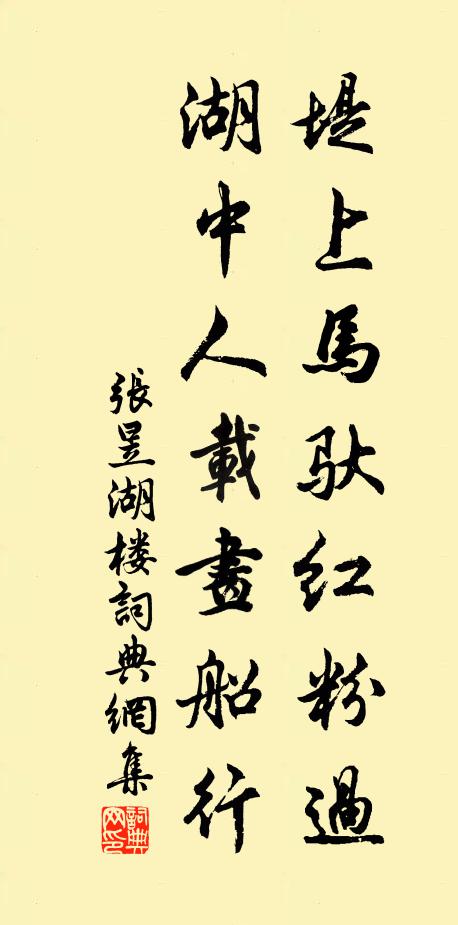 堤上馬馱红粉過
湖中人載畫船行
張昱湖楼詞典網集
詞典网印